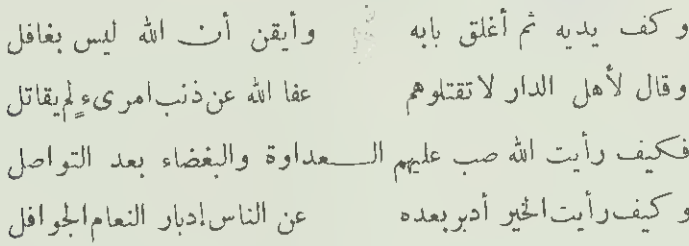 وكف يديه ثم أغلق بابه وأيقن أن الله ليس بغافل
وقال لأهل الدار لا تقتلوهم عفا الله عن ذنب امرىءٍ لم يقاتل
فكيف رأيت الله صب عليهم الـعداوة والبغضاء بعد التواصل
وكيف رأيت الخير أدبر بعده عن الناس إدبار النعام الجوافل